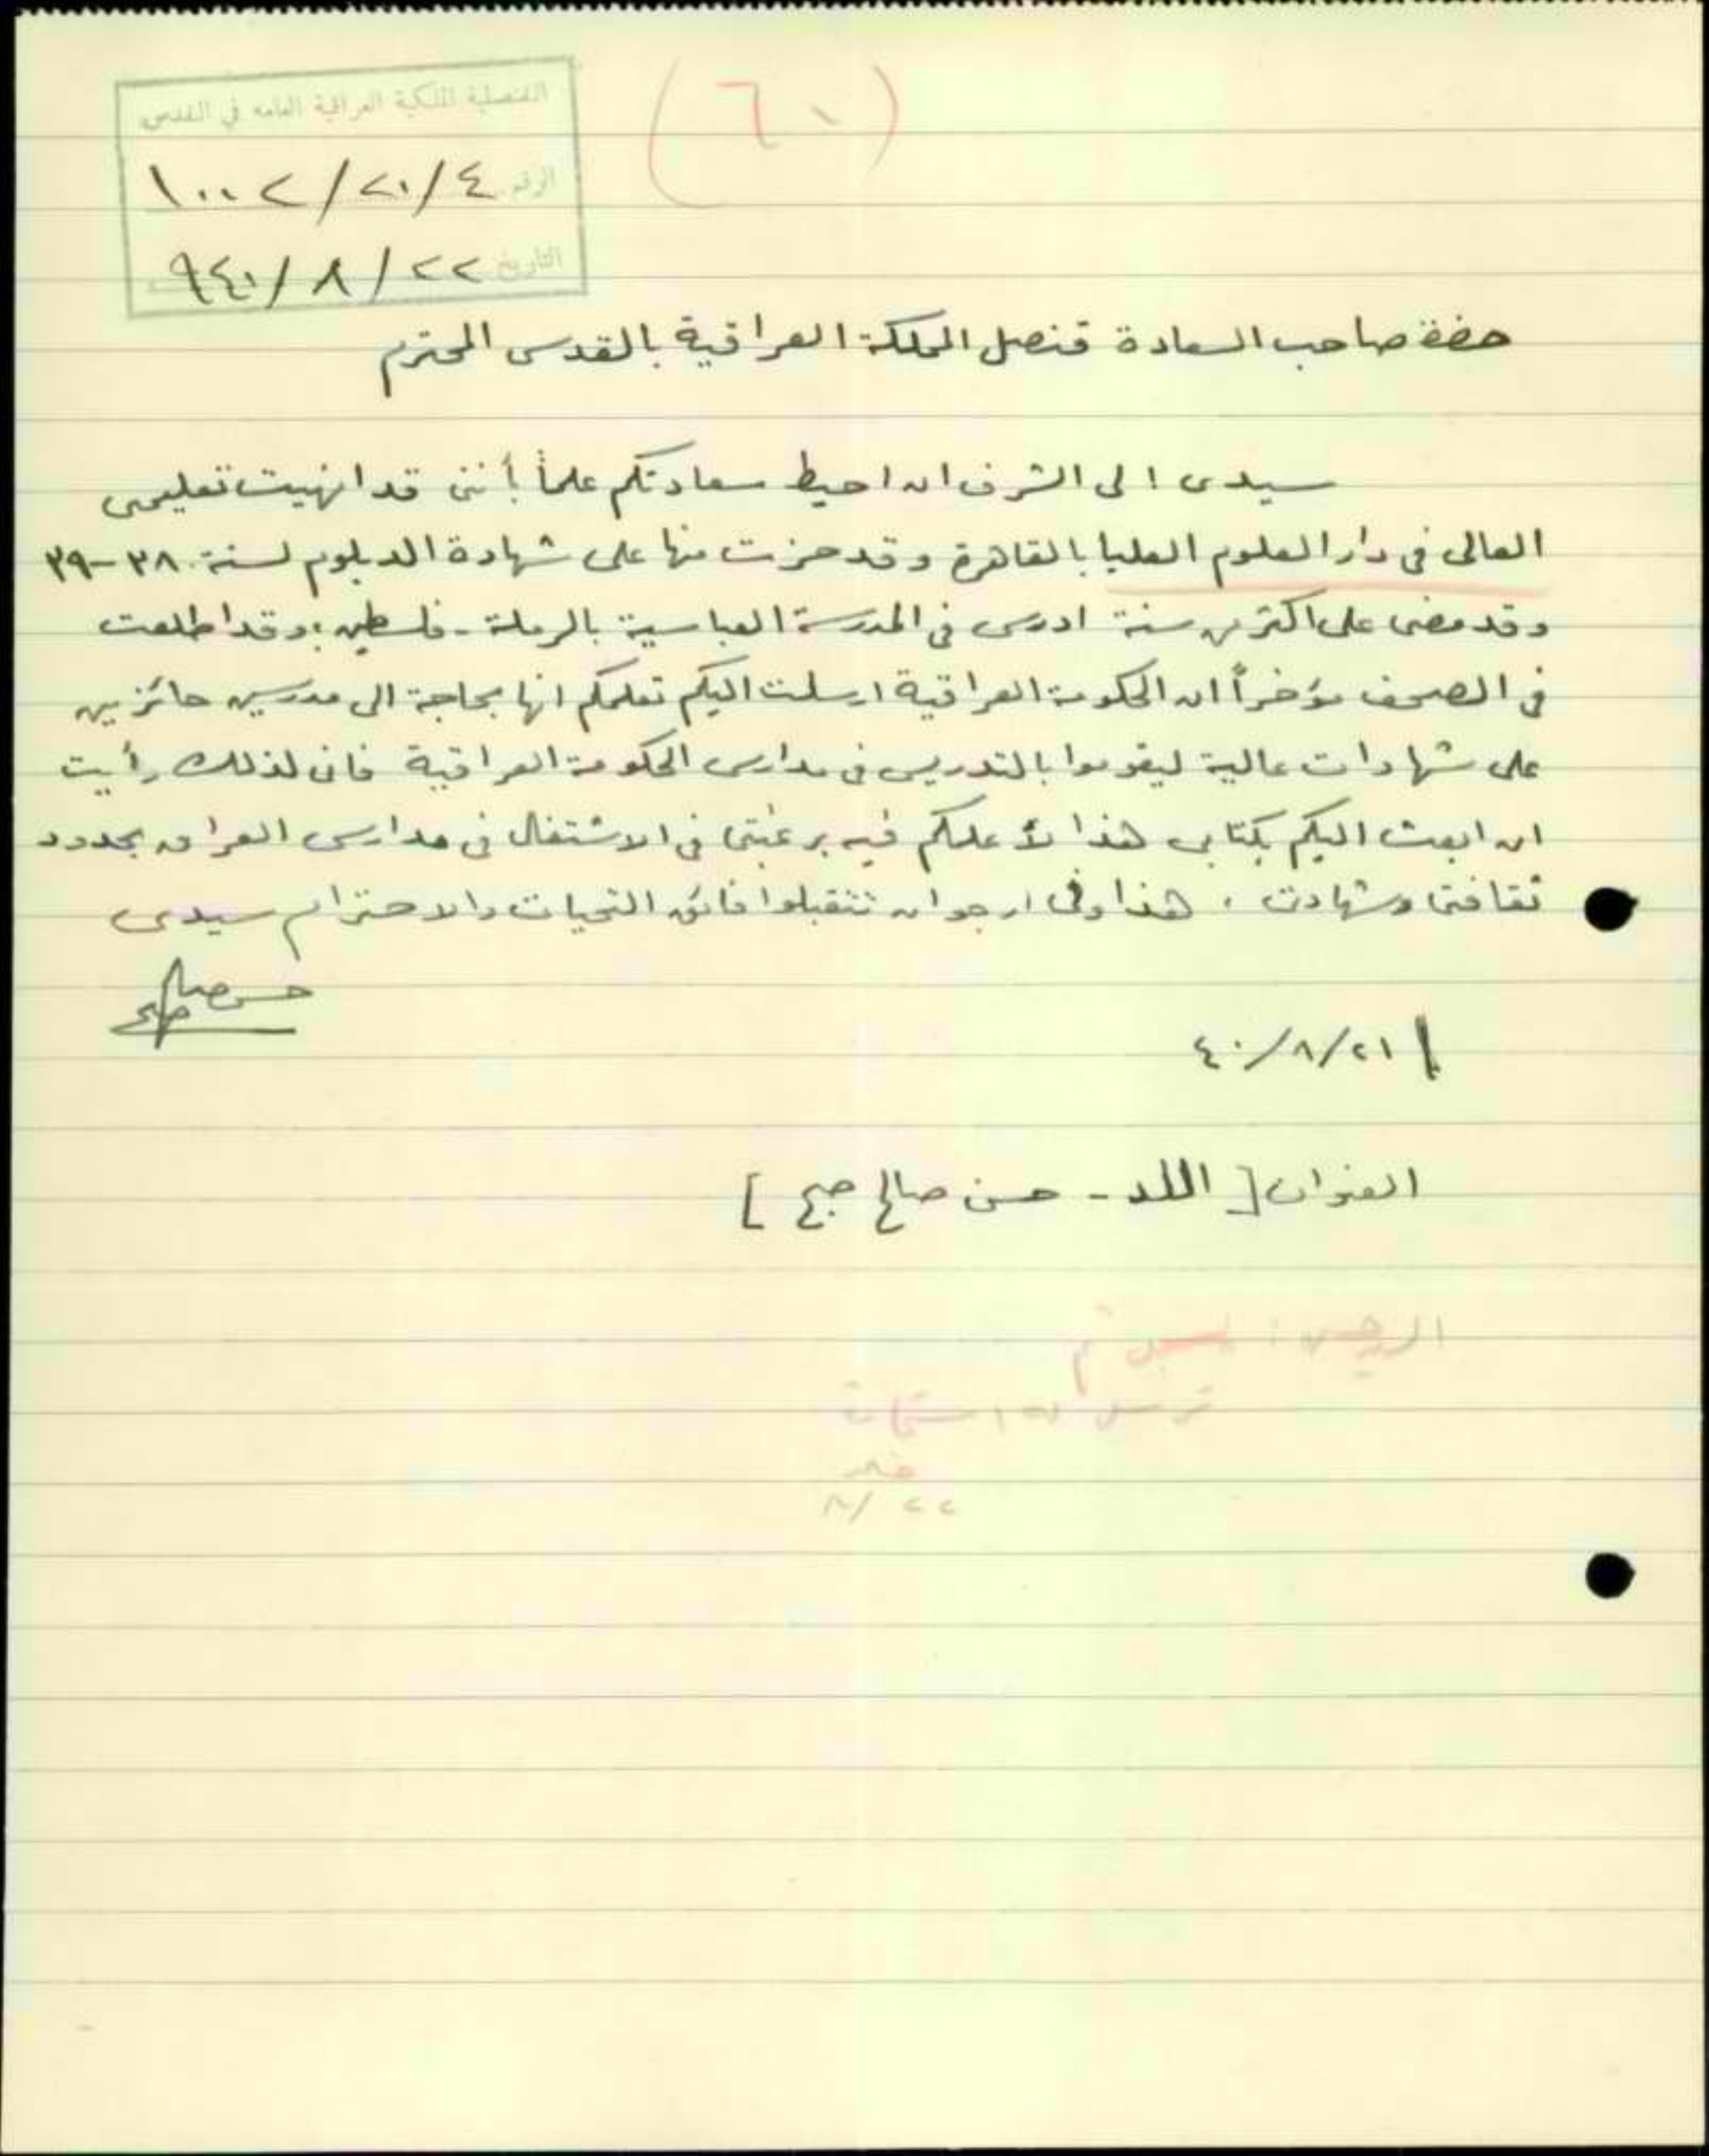 (٦٠)
القنصلية الملكية العراقية العامه في القدس
الرقم ١٠٠٢/٢٠/٤
التاريخ ٩٤٠/٨/٢٢
حضرة صاحب السعادة قنصل المملكة العراقية بالقدس المحترم
سيدى ! لى الشرف ان احيط سعادتكم علماً بأننى قد انهيت تعليمى
العالى فى دار العلوم العليا بالقاهرة وقد حزت منها على شهادة الدبلوم لسنة ٣٨-٣٩
وقد مضى على اكثر من سنة ادرس فى المدرسة العباسية بالرملة - فلسطين، وقد اطلعت
فى الصحف مؤخراً ان الحكومة العراقية ارسلت اليكم تعلمكم انها بحاجة الى مدرسين حائزين
على شهادات عالية ليقوموا بالتدريس فى مدارس الحكومة العراقية فانى لذلك رأيت
ان ابعث اليكم بكتابى هذا لأعلمكم فيه برغبتى فى الاشتغال فى مدارس العراق بحدود
ثقافتى وشهادتى . هذا وانى ارجو ان تتقبلوا فائق التحيات والاحترام سيدى
حسن صالح
٤٠/٨/٢١
العنوان [ اللد - حسن صالح صبح ]
ترسل له استمارة
٨/٢٢